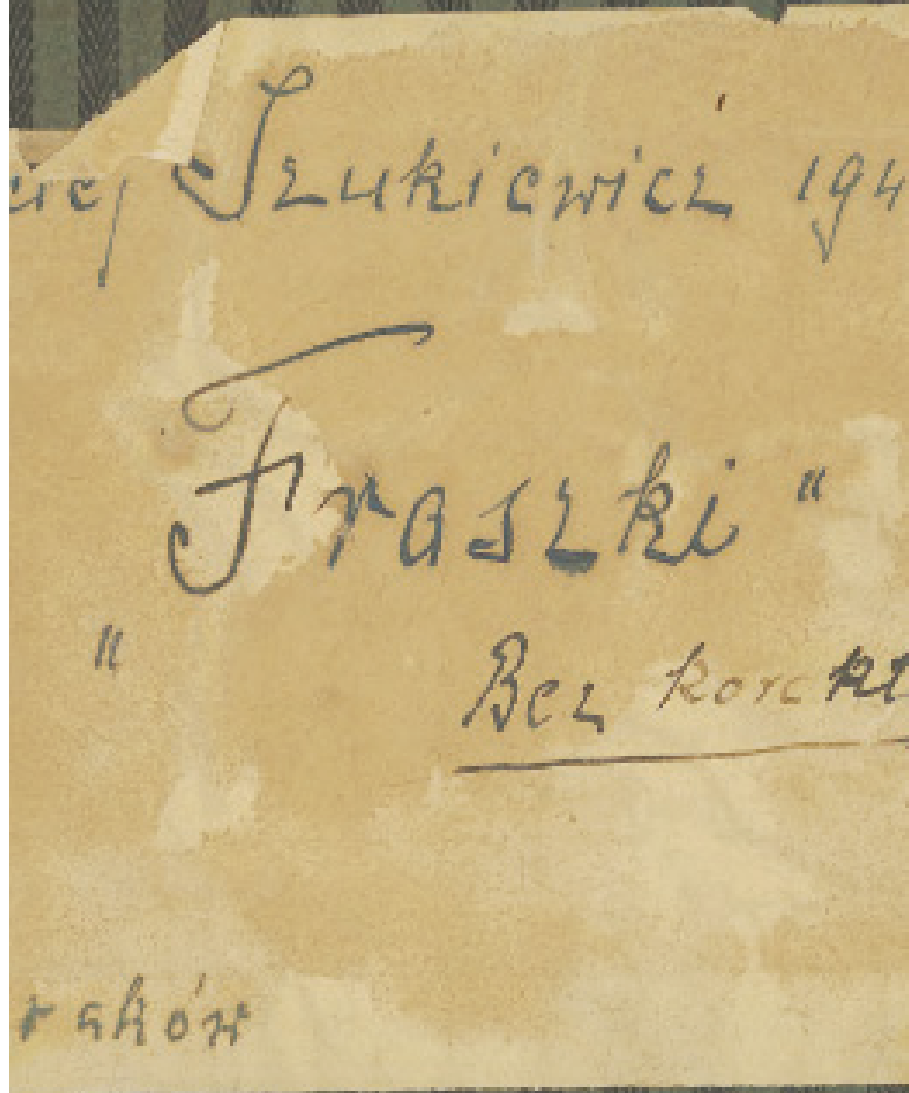 ciej Szukiewicz 194
Fraszki"
" Bez korekt
raków